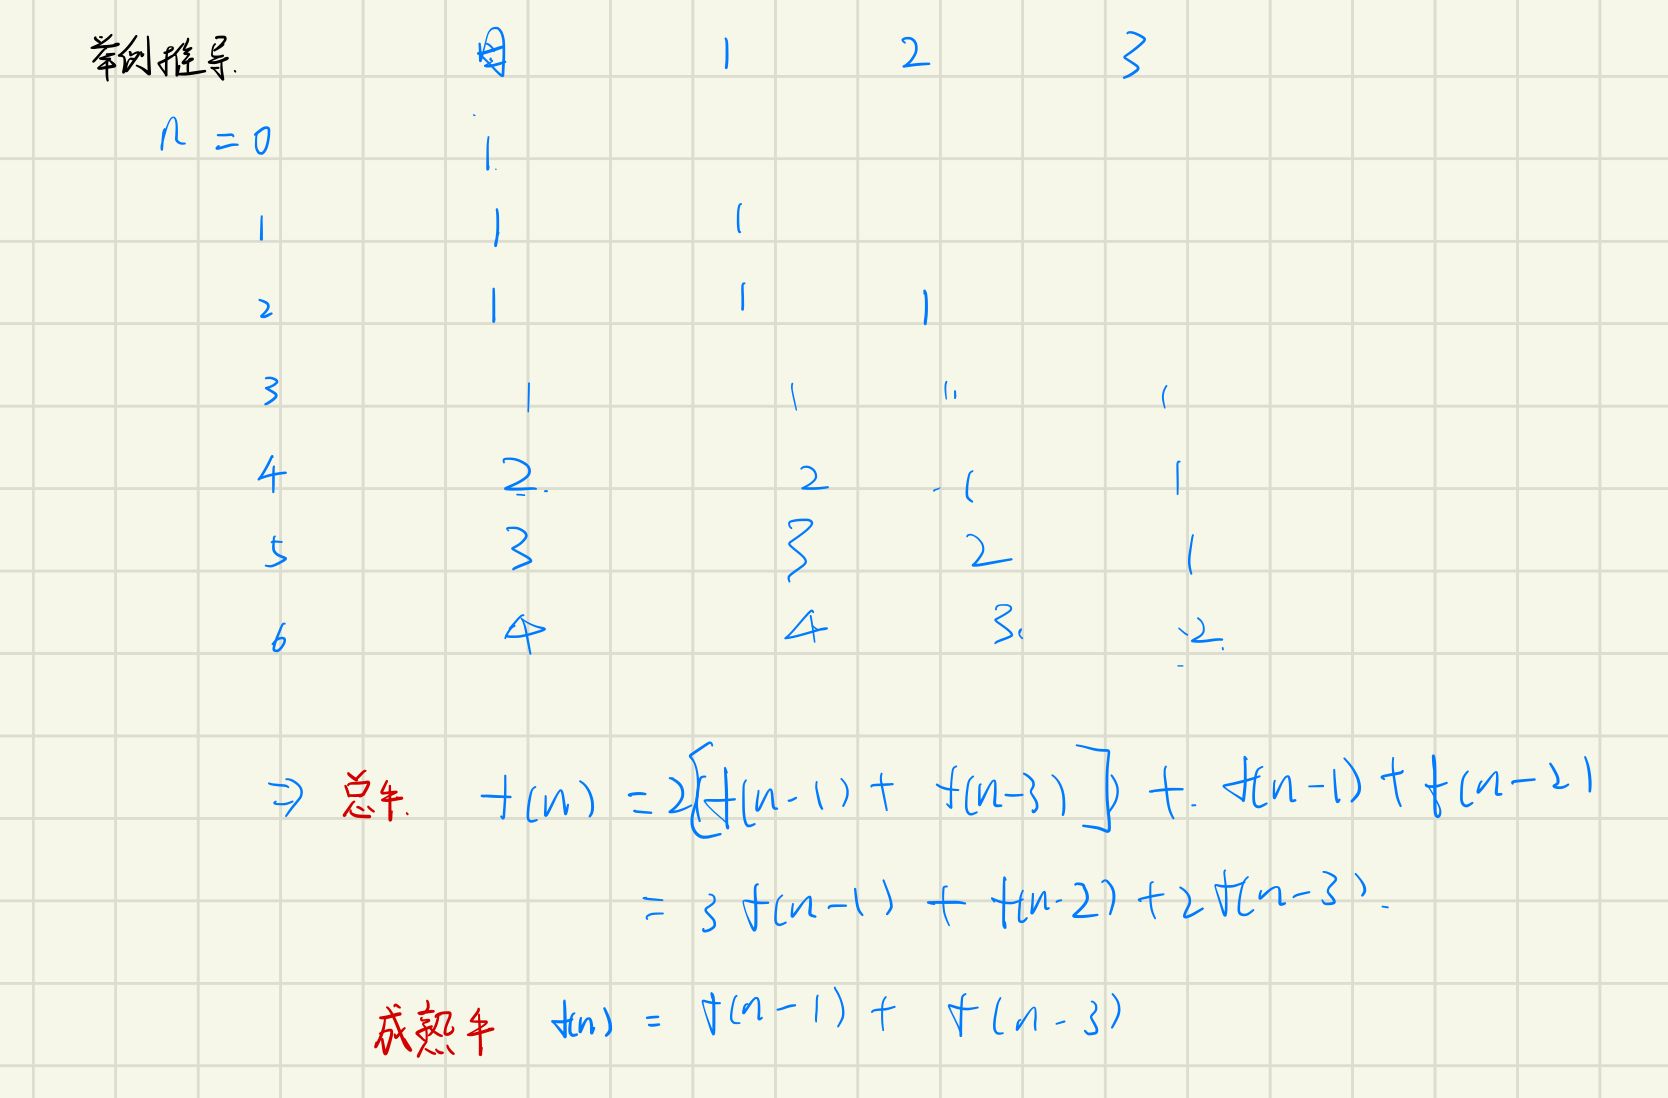 举例推导. 母 1 2 3
n = 0 1
1 1 1
2 1 1 1
3 1 1 1 1
4 2 2 1 1
5 3 3 2 1
6 4 4 3 2
⇒ 总牛. f(n) = 2[f(n-1) + f(n-3)] + f(n-1) + f(n-2)
= 3f(n-1) + f(n-2) + 2f(n-3).
成熟牛 f(n) = f(n-1) + f(n-3)